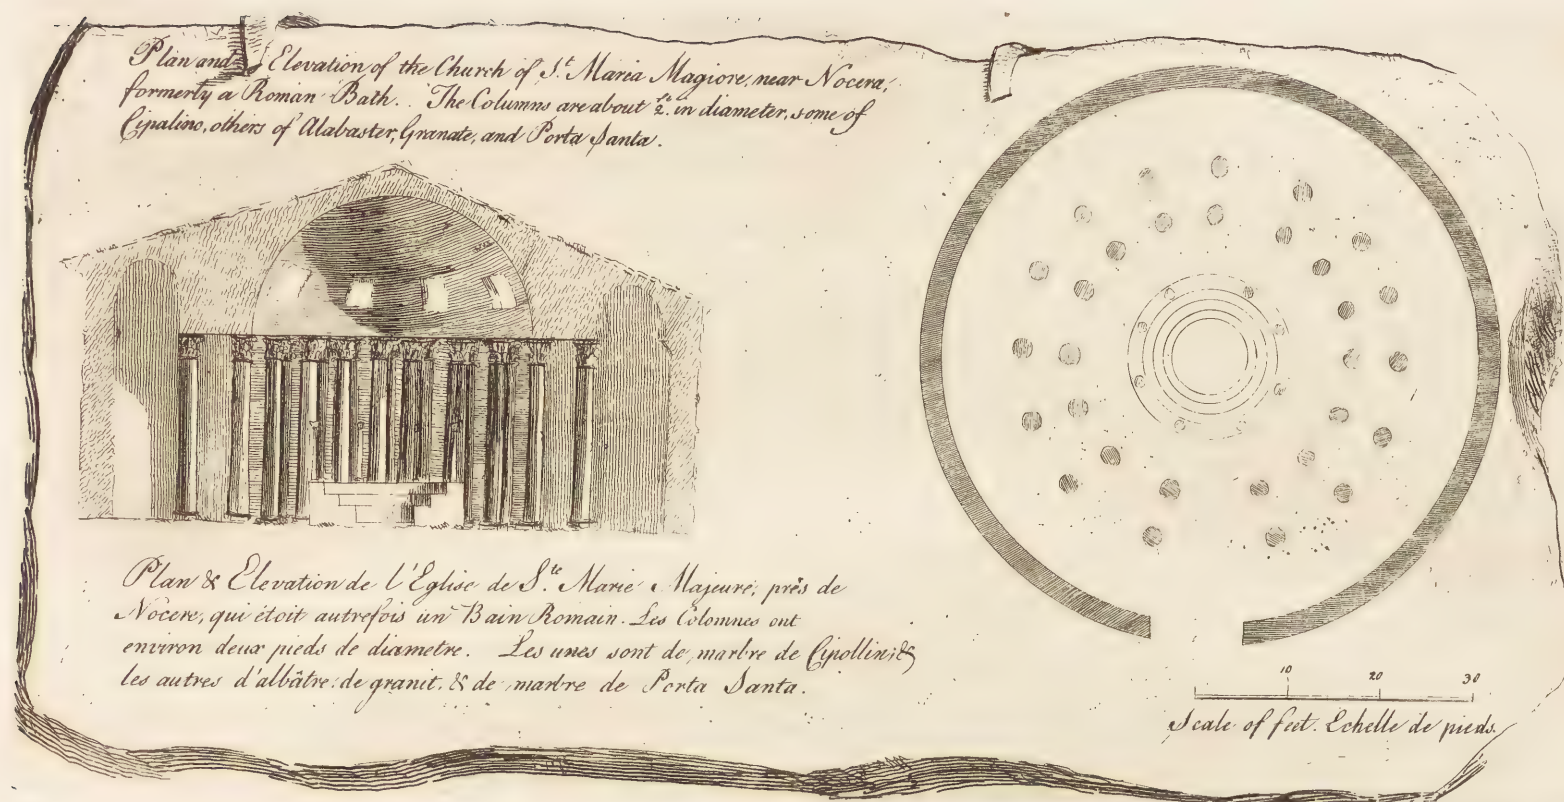 Plan and Elevation of the Church of S.t Maria Magiore, near Nocera,
formerly a Roman Bath. The Columns are about 2.ft in diameter, some of
Cipalino, others of Alabaster, Granate, and Porta Santa.
Plan & Elevation de l'Eglise de S.te Marie Majeure, près de
Nocere, qui étoit autrefois un Bain Romain. Les Colomnes ont
environ deux pieds de diametre. Les unes sont de marbre de Cipollin; &
les autres d'albâtre: de granit. & de marbre de Porta Santa.
10 20 30
Scale of feet. Echelle de pieds.